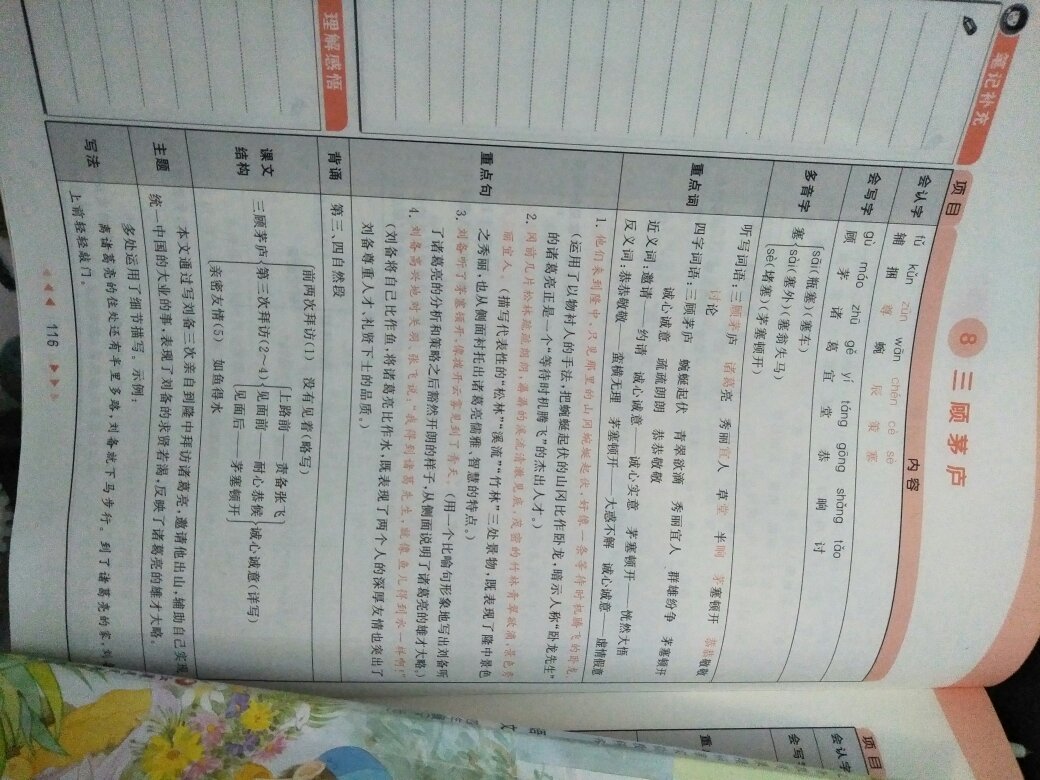 笔记补充
理解感悟
8 三顾茅庐
项目 内容
会认字
fǔ kǔn zūn wān chén cè sè
辅 捆 尊 蜿 辰 策 塞
会写字
gù máo zhū gě yí táng gōng shǎng tǎo
顾 茅 诸 葛 宜 堂 恭 晌 讨
多音字
塞
sāi(瓶塞)(塞车)
sài(塞外)(塞翁失马)
sè(堵塞)(茅塞顿开)
重点词
听写词语:三顾茅庐 诸葛亮 秀丽宜人 草堂 半晌 茅塞顿开 恭恭敬敬
讨论
四字词语:三顾茅庐 蜿蜒起伏 青翠欲滴 秀丽宜人 群雄纷争 茅塞顿开
诚心诚意 疏疏朗朗 恭恭敬敬
近义词:邀请——约请 诚心诚意——诚心实意 茅塞顿开——恍然大悟
反义词:恭恭敬敬——蛮横无理 茅塞顿开——大惑不解 诚心诚意——虚情假意
重点句
1. 他们来到隆中,只见那里的山冈蜿蜒起伏,好像一条等待时机腾飞的卧龙。
(运用了以物衬人的手法,把蜿蜒起伏的山冈比作卧龙,暗示人称“卧龙先生”
的诸葛亮正是一个“等待时机腾飞”的杰出人才。)
2. 冈前几片松林疏疏朗朗,潺潺的溪流清澈见底,茂密的竹林青翠欲滴,景色秀
丽宜人。(描写代表性的“松林”“溪流”“竹林”三处景物,既表现了隆中景色
之秀丽,也从侧面衬托出诸葛亮儒雅、智慧的特点。)
3. 刘备听了茅塞顿开,像拨开云雾见到了青天。(用一个比喻句形象地写出刘备听
了诸葛亮的分析和策略之后豁然开朗的样子,从侧面说明了诸葛亮的雄才大略。)
4. 刘备高兴地对关羽、张飞说:“我得到诸葛先生,就像鱼儿得到水一样啊!”
(刘备将自己比作鱼,将诸葛亮比作水,既表现了两个人的深厚友情也突出了
刘备尊重人才、礼贤下士的品质。)
背诵 第三、四自然段
课文结构
三顾茅庐
前两次拜访(1) 没有见着(略写)
第三次拜访(2~4)
上路前——责备张飞
见面前——耐心恭候
见面后——茅塞顿开
诚心诚意(详写)
亲密友情(5) 如鱼得水
主题
本文通过写刘备三次亲自到隆中拜访诸葛亮,邀请他出山,辅助自己实现
统一中国的大业的事,表现了刘备的求贤若渴,反映了诸葛亮的雄才大略。
写法
多处运用了细节描写。示例:
离诸葛亮的住处还有半里多路,刘备就下马步行。到了诸葛亮的家,刘备
上前轻轻敲门。
116
项目
会认字
会写
重